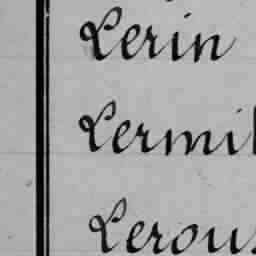 Lerin
Lermi
Lerou